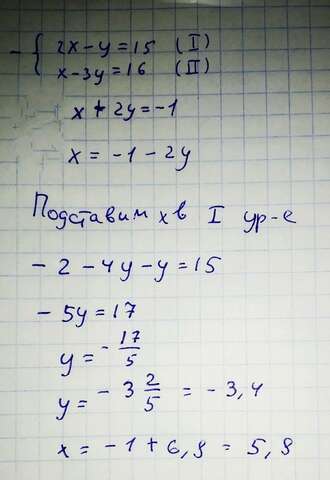 - { 2x-y=15 (I)
x-3y=16 (II)
x+2y=-1
x = -1-2y
Подставим x в I ур-е
-2-4y-y=15
-5y=17
y=-17/5
y=-3 2/5 = -3,4
x = -1+6,8 = 5,8